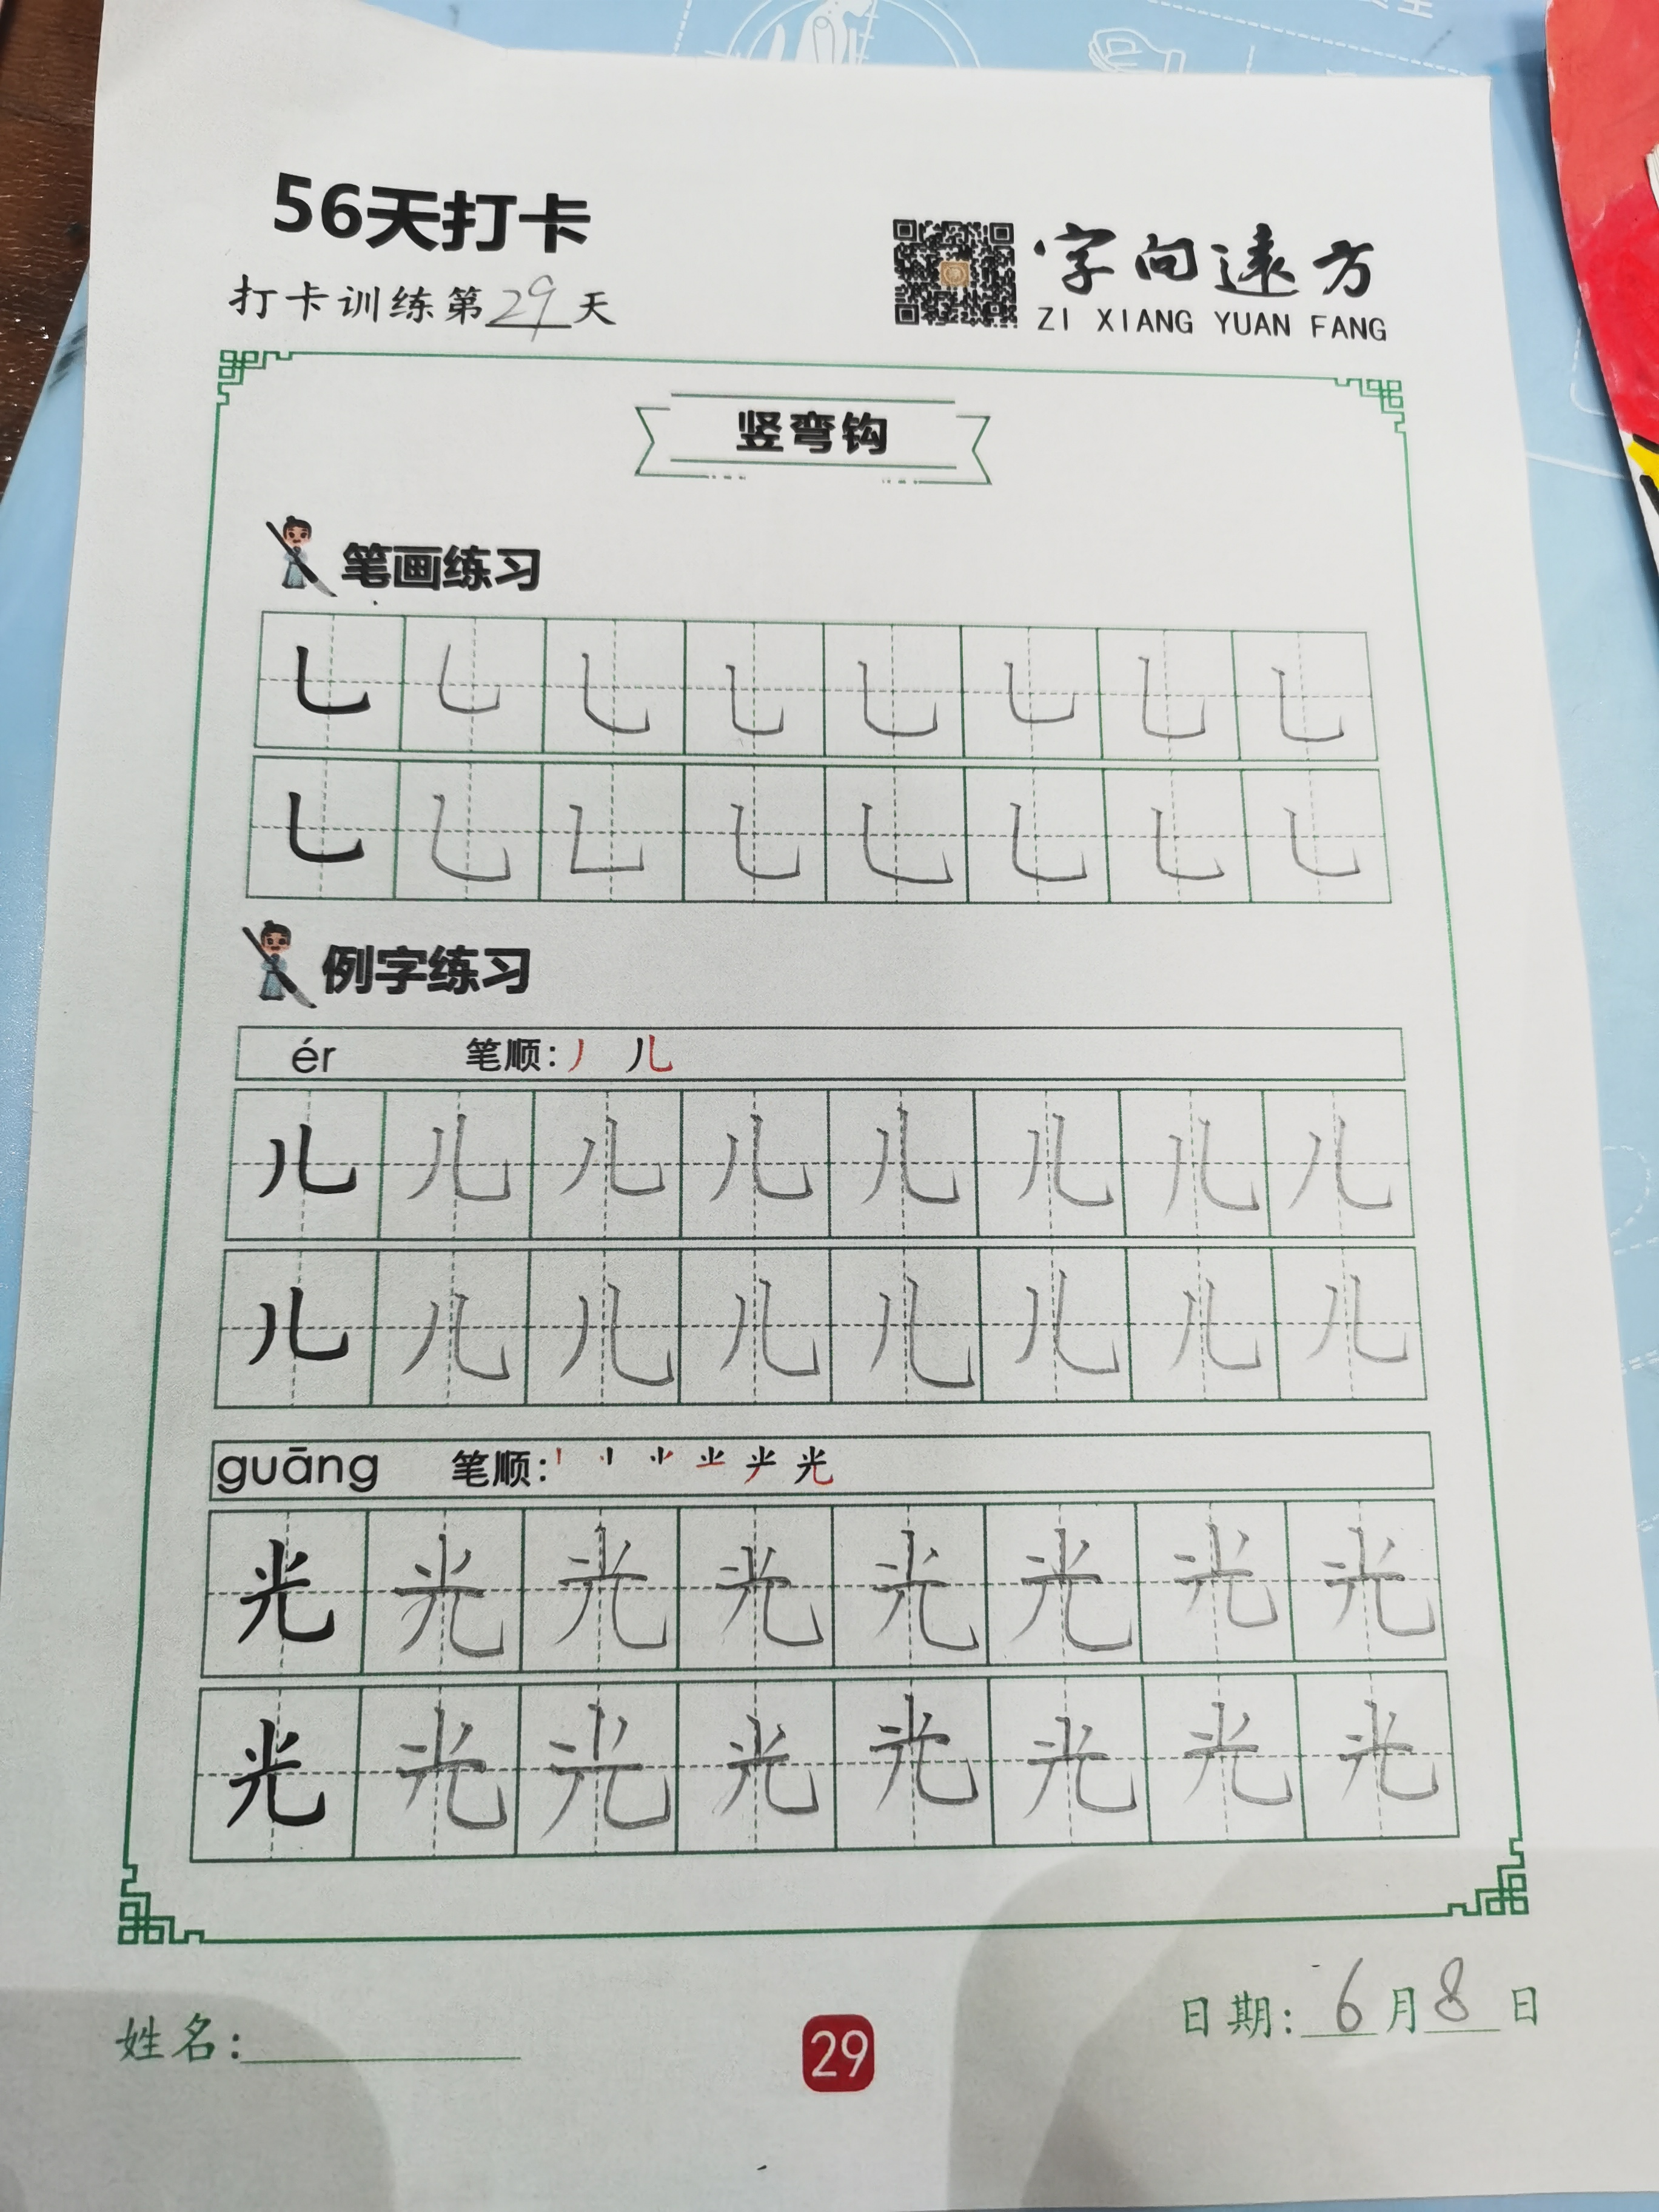 56天打卡
打卡训练第29天
字向遠方
ZI XIANG YUAN FANG
竖弯钩
笔画练习
乚 乚 乚 乚 乚 乚 乚 乚
乚 乚 乚 乚 乚 乚 乚 乚
例字练习
ér 笔顺: 丿 儿
儿 儿 儿 儿 儿 儿 儿 儿
儿 儿 儿 儿 儿 儿 儿 儿
guāng 笔顺: 光
光 光 光 光 光 光 光 光
光 光 光 光 光 光 光 光
姓名:
29
日期: 6月8日